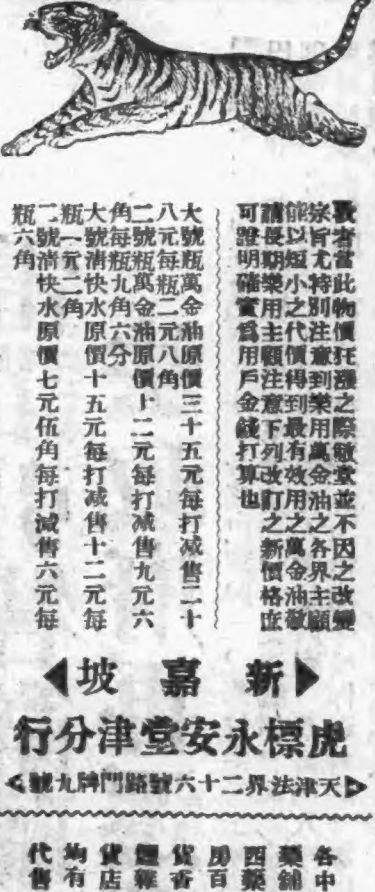 敬者當此物價狂漲之際敝堂並不因之改變
宗旨尤特別注意到樂用萬金油之各界主顧
能以短小之代價得到最有效用之萬金油敬
請長期樂用主顧注意下列改訂之新價格庶
可證明確實爲用戶金錢打算也
大號瓶萬金油原價三十五元每打减售二十
八元每瓶二元八角
二號瓶萬金油原價十二元每打减售九元六
角每瓶九角六分
大號清快水原價十五元每打减售十二元每
瓶一元二角
二號清快水原價七元伍角每打减售六元每
瓶六角
新嘉坡
虎標永安堂津分行
天津法界二十六號路門牌九號
各中
藥舖
西藥
房百
貨香
煙雜
貨店
均有
代售